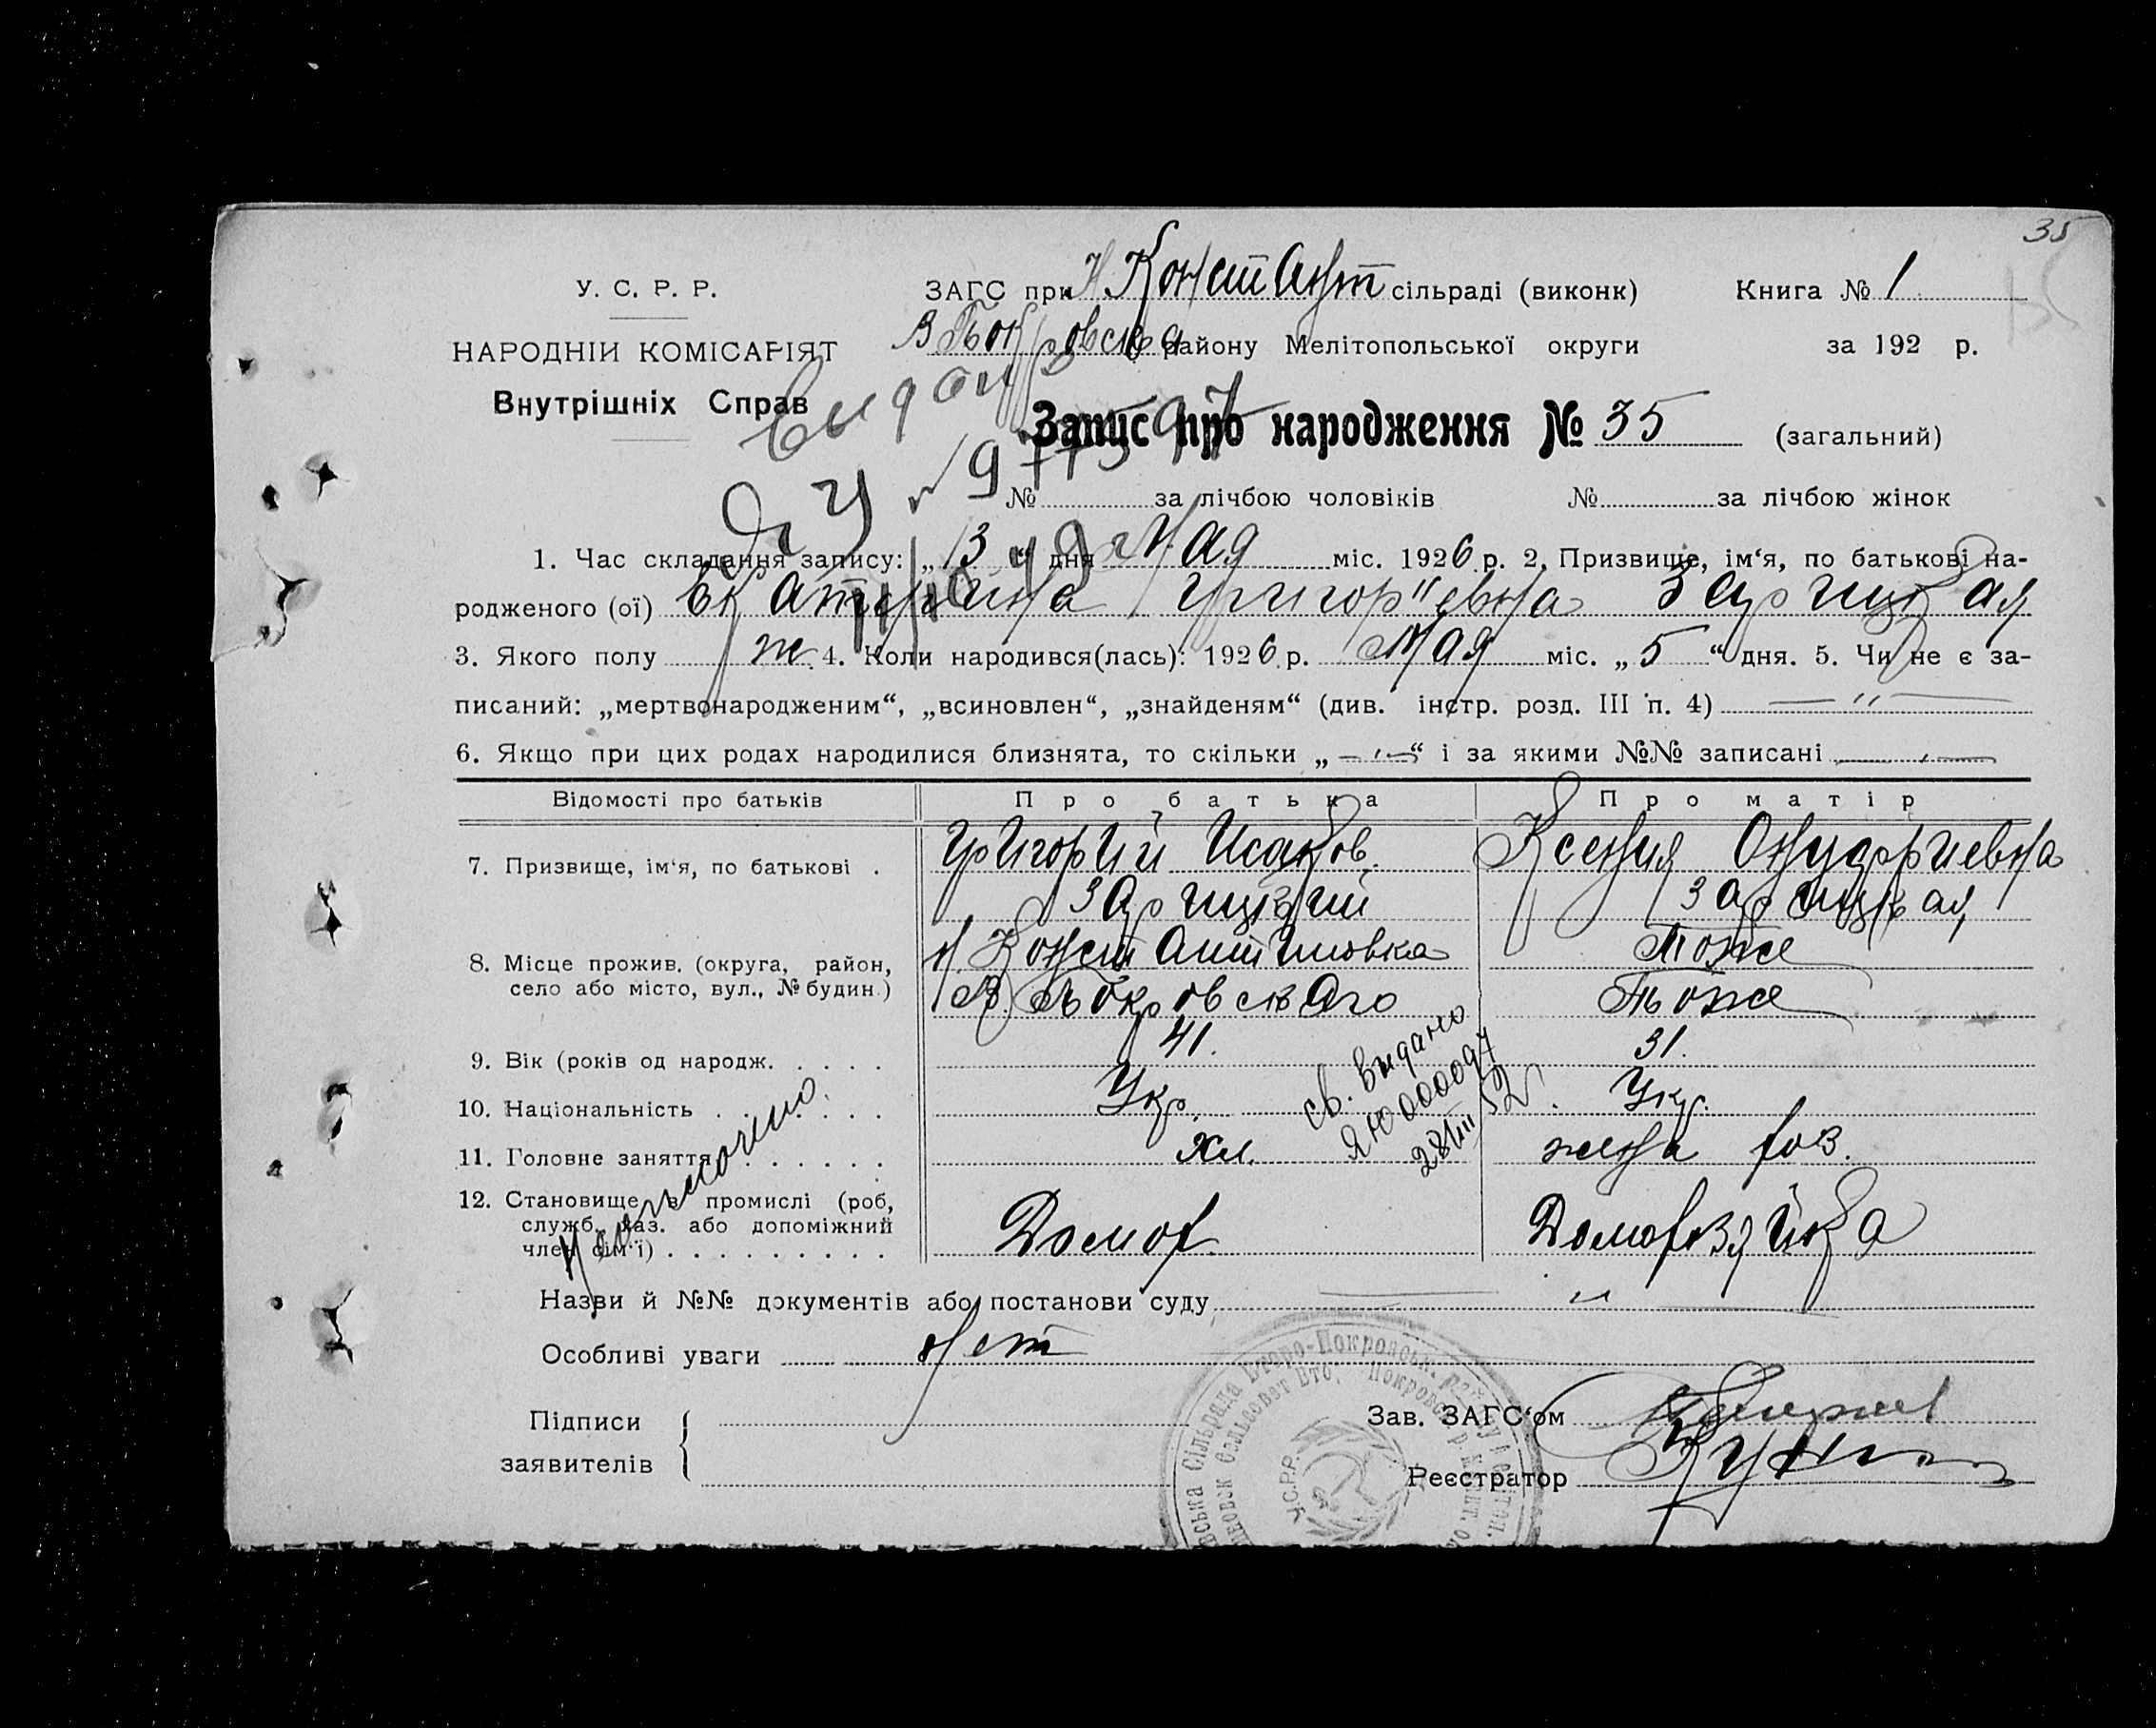 35
У. С. Р. Р.
ЗАГС при Н Констант сільраді (виконк)
Книга № 1
НАРОДНІЙ КОМІСАРІЯТ
В Покровска району Мелітопольської округи
за 192 р.
Внутрішніх Справ
Выдан
Запис про народження № 35 (загальний)
№ за лічбою чоловіків № за лічбою жінок
1. Час складання запису: „13“ дня Мая міс. 1926 р. 2. Призвище, ім‘я, по батькові на-
родженого (ої) Екатерина Григорьевна Зарицкая
3. Якого полу ж. 4. Коли народився(лась): 1926 р. Мая міс. „5“ дня. 5. Чи не є за-
писаний: „мертвонародженим“, „всиновлен“, „знайденям“ (див. інстр. розд. III п. 4) — " —
6. Якщо при цих родах народилися близнята, то скільки „—"—“ і за якими №№ записані
Відомості про батьків Про батька Про матір
7. Призвище, ім‘я, по батькові . Григорий Исаков. Ксения Онуфриевна
Зарицкий Зарицкая
8. Місце прожив. (округа, район, Н. Константиновка Тоже
село або місто, вул., № будин.) В. Покровскаго Тоже
9. Вік (років од народж. . . . . 41. 31.
10. Національність . . . . . Укр. Укр.
св. выдано
ЯЮ 000097
28/III 52
11. Головне заняття . . . . . . Хл. жена хоз.
12. Становище в промислі (роб,
служб., хаз. або допоміжний
член сім‘ї) . . . . . . . . . Домох. Домохозяйка
Назви й №№ документів або постанови суду — " —
Особливі уваги нет
Підписи
заявителів
Зав. ЗАГС‘ом
Реєстратор
У.С.Р.Р.